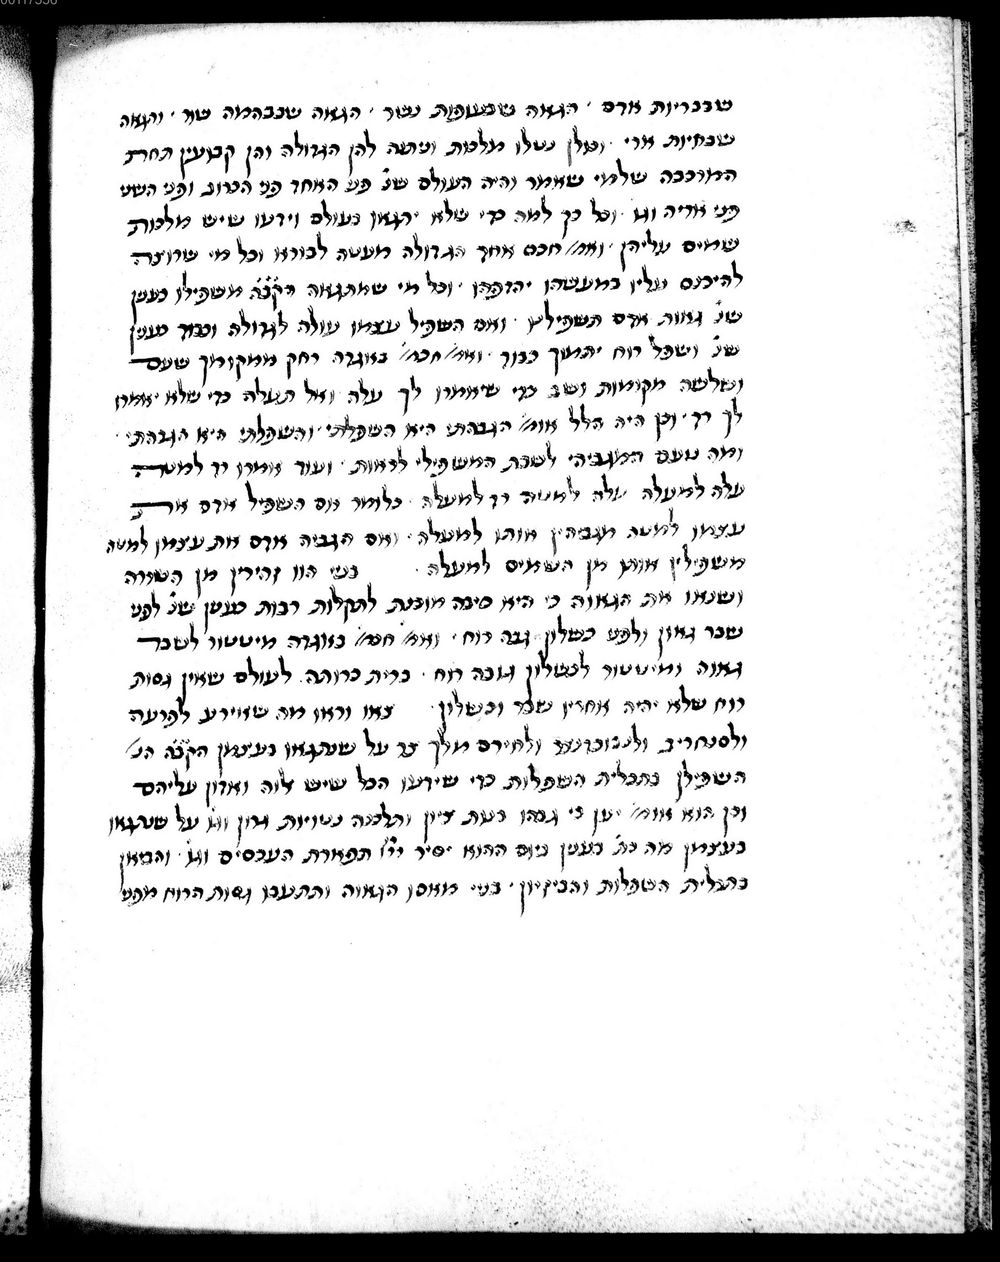 שבבריות אדם · הגאה שבעופות נשר · הגאה שבבהמה שור · והגאה
שבחיות ארי · וכולן נטלו מלכות וניתנה להן הגדולה והן קבועין תחת
המרכבה שלמי שאמר והיה העולם שנ' פני האחד פני הכרוב ופני השני
פני אריה וגו' · וכל כך למה כדי שלא יתגאו בעולם וידעו שיש מלכות
שמים עליהן · ואמ' חכם אחד הגדולה מעטה לבורא וכל מי שרוצה
להיכנס עליו במעטהו יהדפהו · וכל מי שמתגאה הק'ב'ה משפילו כענין
שנ' גאות אדם תשפילנו · ואם השפיל עצמו עולה לגדולה וכבוד כענין
שנ' ושפל רוח יתמוך כבוד · ואמ' חכמ' באגדה רחק ממקומך שנים
ושלשה מקומות ושב כדי שיאמרו לך עלה ואל תעלה כדי שלא יאמרו
לך רד · וכן היה הלל אומ' הגבהתי היא השפלתי · והשפלתי היא הגבהתי ·
ומה טעם המגביהי לשבת המשפילי לראות · ועוד אמרו רד למטה
עלה למעלה עלה למטה רד למעלה · כלומר אם השפיל אדם את
עצמו למטה מגביהין אותו למעלה · ואם הגביה אדם את עצמו למטה
משפילין אותו מן השמים למעלה · בני הוו זהירין מן השררה
ושנאו את הגאוה כי היא סיבה מוכנת לתקלות רבות כענין שנ' לפני
שבר גאון ולפני כשלון גבה רוח · ואמ' חכמ' באגדה מיטטור לשבר
גאוה ומיטטור לכשלון גובה רוח · ברית כרותה לעולם שאין גסות
רוח שלא יהיה אחריו שבר וכשלון · צאו וראו מה שאירע לפרעה
ולסנחריב ולנבוכדנצר ולחירם מלך צר על שנתגאו בעצמן הק'ב'ה הנ'
השפילן בתכלית השפלות כדי שידעו הכל שיש לוה ואדון עליהם
וכן הוא אומ' יען כי גבהו בנות ציון ותלכנה נטויות גרון וגו' על שנתגאו
בעצמן מה כת' בענין ביום ההוא יסיר יי' תפארת העכסים וגו' · והביאן
בתכלית השפלות והבזיון · בני מאסו הגאוה ותתעבו גסות הרוח מפני